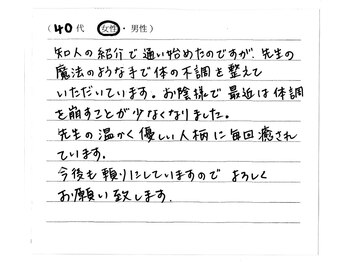 (40代 女性・男性)
知人の紹介で通い始めたのですが、先生の
魔法のような手で体の不調を整えて
いただいています。お陰様で最近は体調
を崩すことが少なくなりました。
先生の温かく優しい人柄に毎回癒され
ています。
今後も頼りにしていますので よろしく
お願い致します.